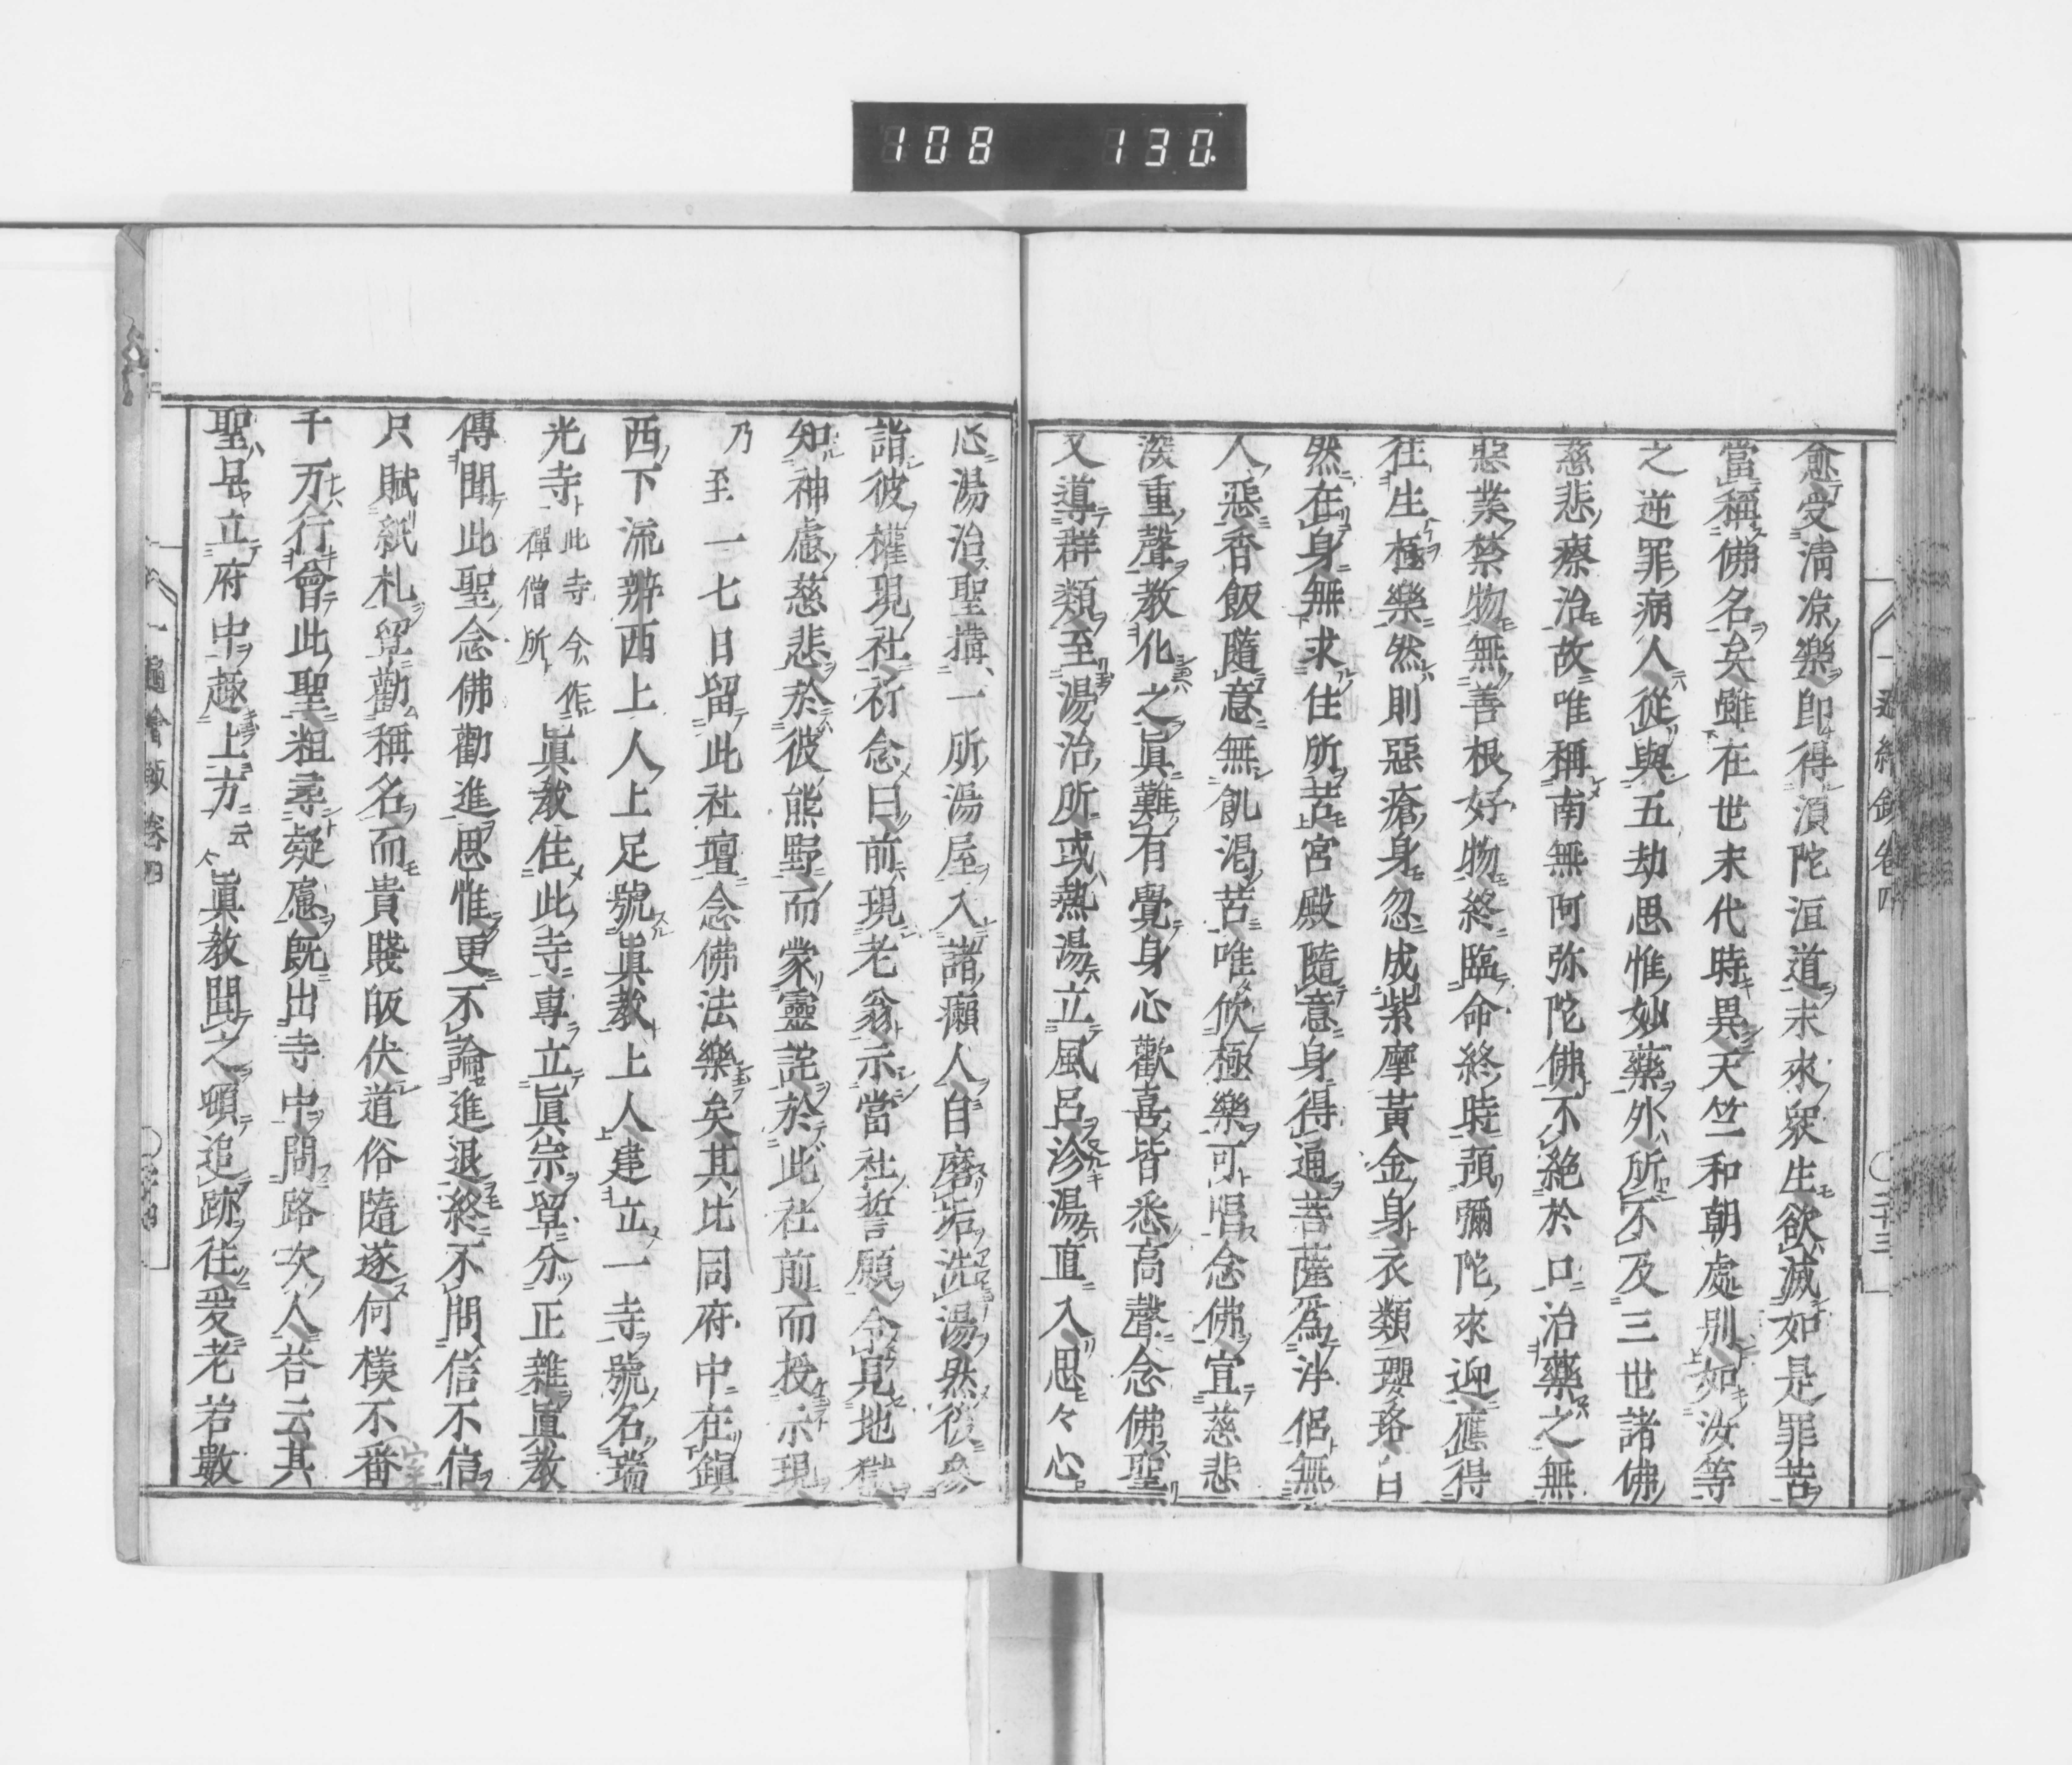 108 130
一遍繪鈔卷四 二十三
愈受淸凉樂卽得湏陀洹道末來衆生欲滅如是罪苦
當稱佛名矣雖在世末代時異天竺和朝處別如汝等
之逆罪病人從與五劫思惟妙藥外所不及三世諸佛
慈悲療治故唯稱南無阿弥陀佛不絕於口治藥之無
惡業禁物無善根好物終臨命終時預彌陀來迎應得
往生極樂然則惡瘡身忽成紫摩黃金身衣類瓔珞自
然在身無求住所苦宮殿隨意身得通菩薩爲泮侶無
人惡香飯隨意無飢渴苦唯欣極樂可唱念佛宜慈悲
深重聲敎化之眞難有覺身心歡喜皆悉高聲念佛聖
又導群類至湯治所或熱湯立風呂沴湯直入思々心
㞢湯治聖搆一所湯屋入諸癩人自磨垢洗湯然後參
詣彼權現社祈念曰前現老翁示當社誓願今見地獄
知神慮慈悲於彼熊野而蒙靈託於此社前而授示現
乃至一七日留此社壇念佛法樂矣其比同府中在鎭
西下流辨西上人上足號眞敎上人建立一寺號名瑞
光寺此寺今作禪僧所眞敎住此寺專立眞宗單分正雜眞敎
傳聞此聖念佛勸進思惟更不論進退終不問信不信
只賦紙札單勸稱名而貴賤皈伏道俗隨逐何樣不番
千万行會此聖粗尋疑慮旣出寺中問路次人荅云其
聖旦立府中趣上方云 眞敎聞之頓追跡往爰老若數